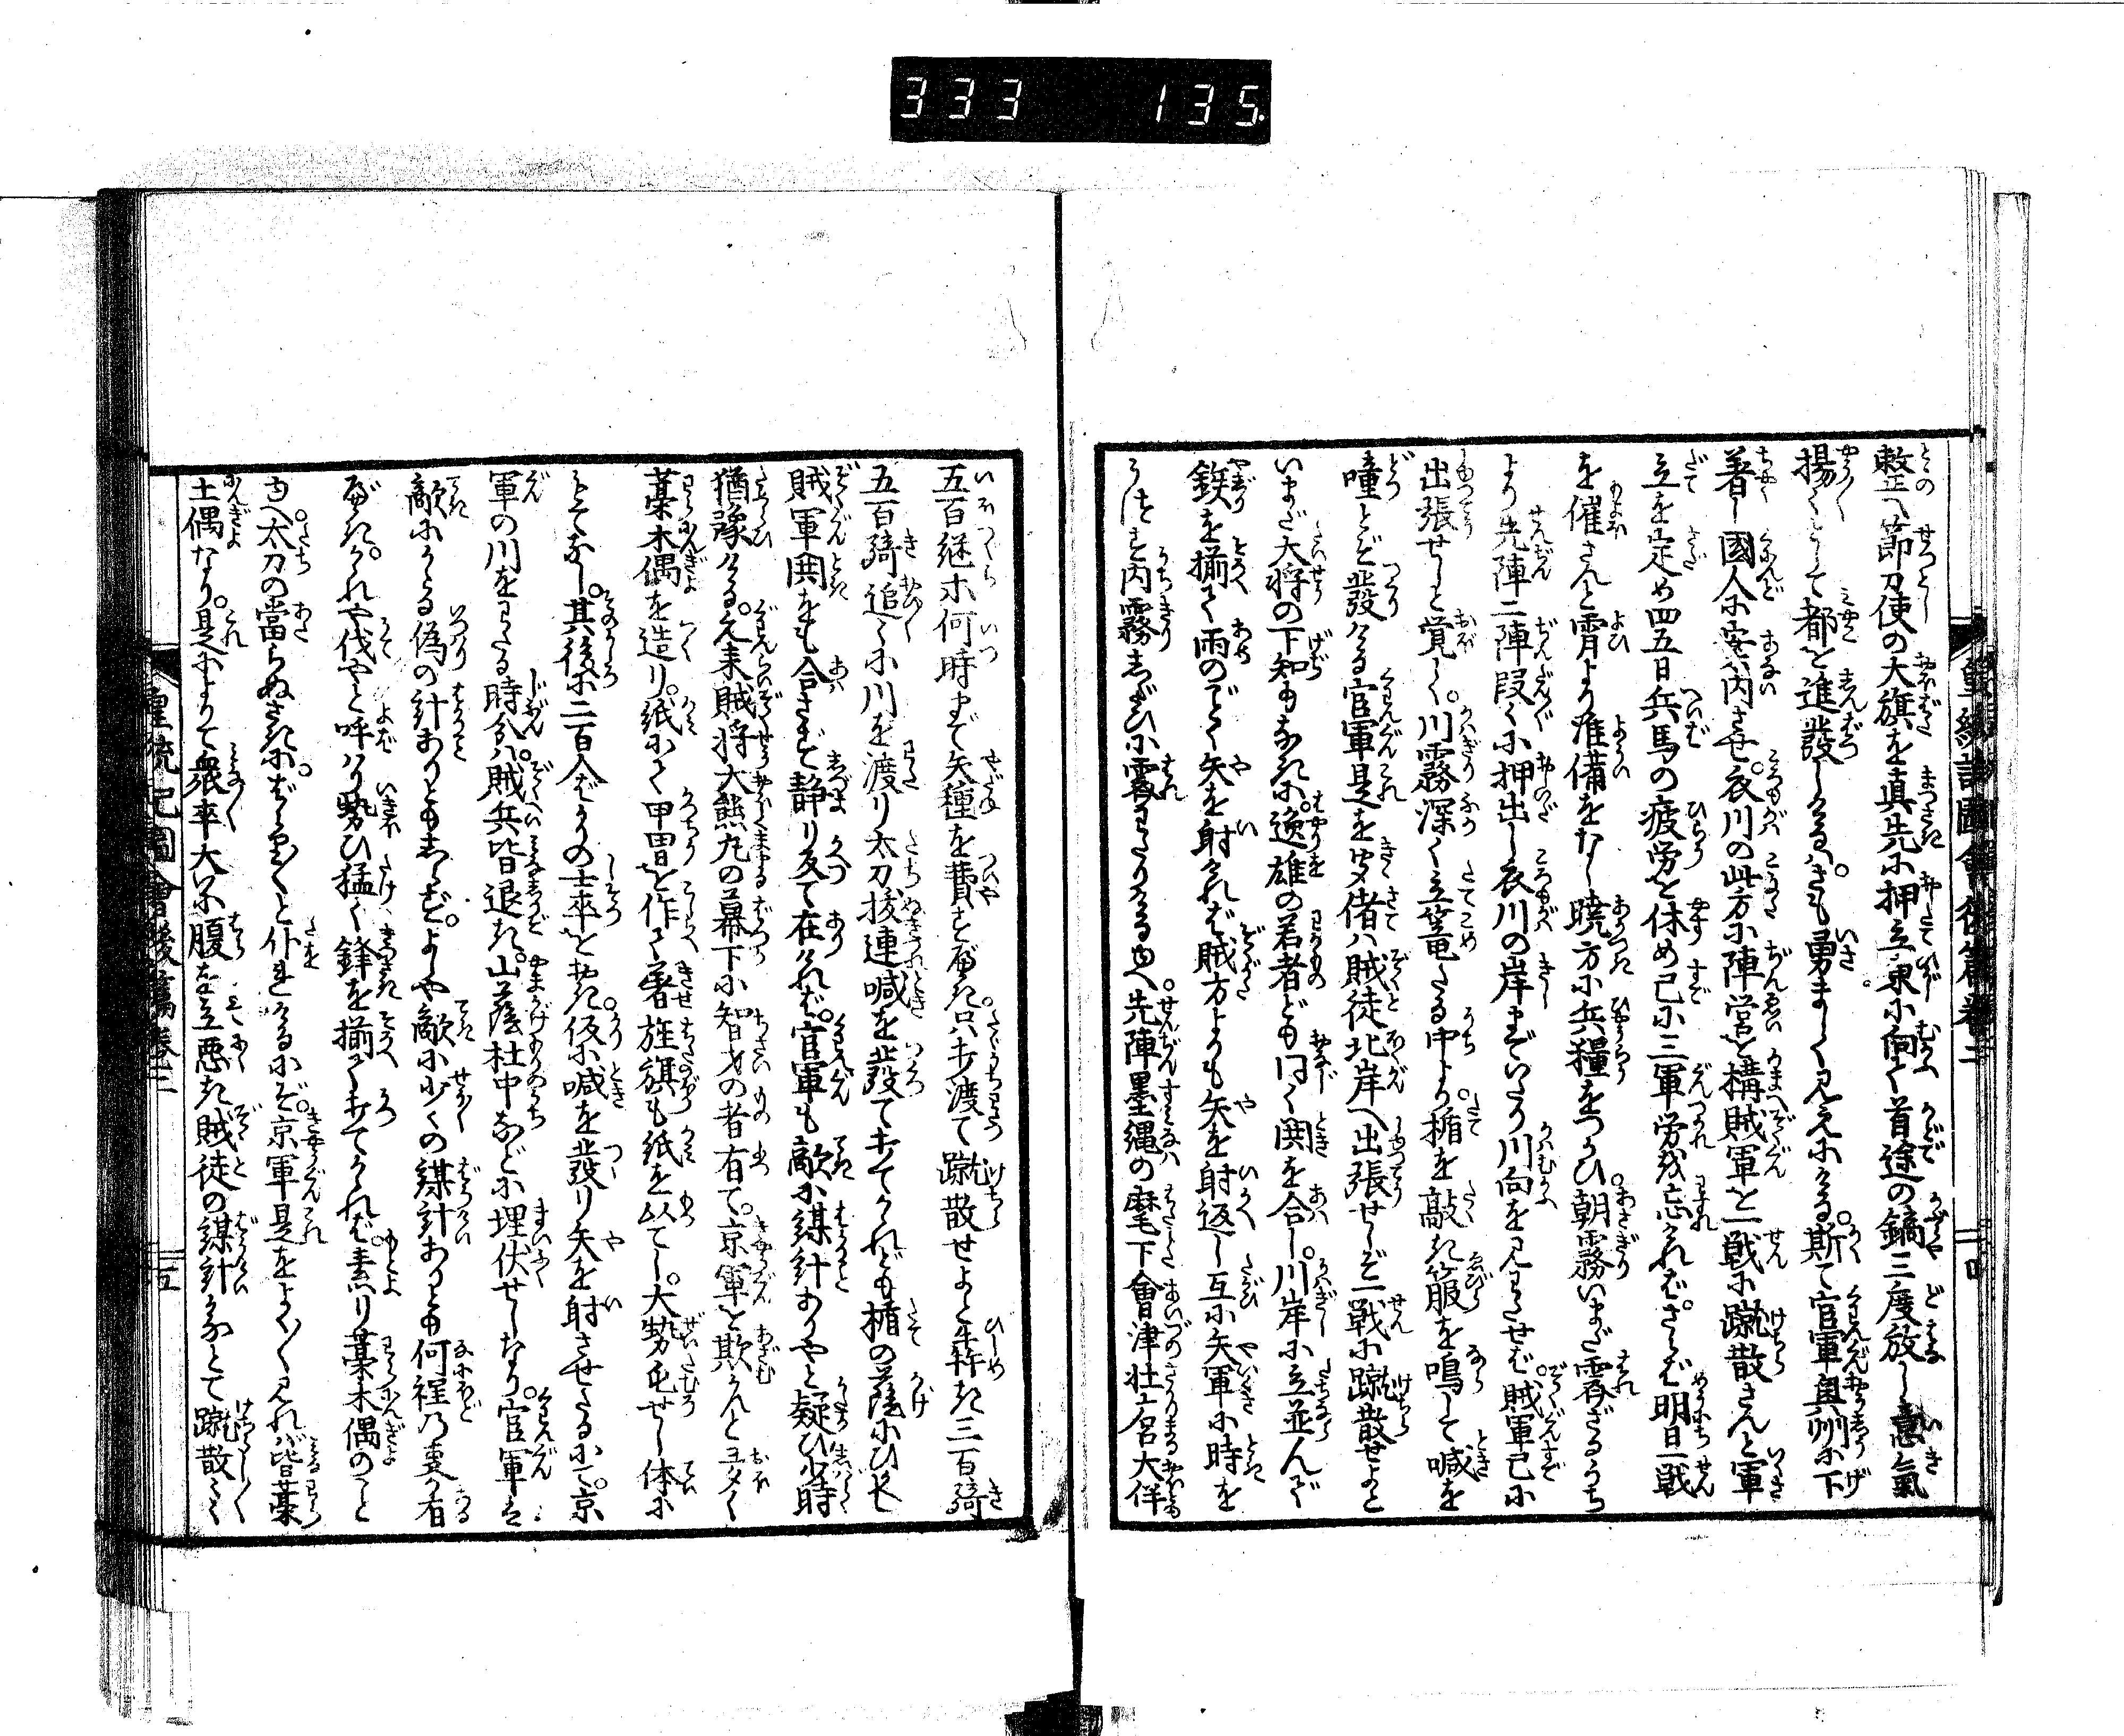 333 135.
敕立へ節刀使の大旗を真先に押立東に向て首途の鏑三度放し意氣
揚々として都を進發しけるハきも勇ましく見えにける。斯て官軍奥州に下
著し國人に案内させ。衣川の此方に陣営を構賊軍と一戦に蹴散さんと軍
立を定め四五日兵馬の疲労を休め已に三軍労を忘れけれバ。さらバ明日一戦
を催さんと霄より准備をなし暁方に兵糧をつかひ朝霧いまだ霽ざるうち
より先陣二陣段々に押出し衣川の岸までいたり川向を見わたせバ。賊軍已に
出張せしと覚しく。川霧深く立篭たる中より。楯を敲き箙を鳴して喊を
噇とぞ發ける官軍是を聞偖ハ賊徒北岸へ出張せしぞ一戦に蹴散せよと
いまだ大将の下知もなきに。逸雄の若者ども同く閧を合し。川岸に立並んで
鏃を揃て雨のごとく矢を射けれバ賊方よりも矢を射返し互に矢軍に時を
うつす内霧もしだひに霽わたりけるゆへ。先陣墨縄の麾下會津壮士名大伴
五百継ホ何時まで矢種を費すべき。只打渡て蹴散せよと犇き三百騎
五百騎追々に川を渡り太刀抜連喊を發て打てかゝれども楯の蔭にひかへし
賊軍閧をも合さず静り反て在けれバ。官軍も敵に謀計ありやと疑ひ少時
猶豫ける。元来賊将大熊丸の幕下に智才の者有て。京軍を欺かんとヲヲク
藁木偶を造り。紙にて甲冑を作て著せ旌旗も紙を以てし。大勢屯せし体に
もてなし。其後に二百人ばかりの士卒をおき。仮に喊を發り矢を射させたるにて。京
軍の川をわたる時分ハ。賊兵皆退き。山蔭杜中などに埋伏せしなり。官軍ハ
敵にかゝる偽の計ありともしらず。よしや敵に少くの謀計ありとも何程の事か有
べき。かれや伐やと呼ハり勢ひ猛く鋒を揃て打てかゝれバ。素り藁木偶のこと
ゆへ。太刀の當らぬさきに。ばら〳〵と仆れけるにぞ。京軍是をよく〳〵見れバ皆藁
土偶なり。是によりて衆卒大に腹を立悪き賊徒の謀計かなとて蹴散し〳〵
皇統記圖會後篇巻二 五